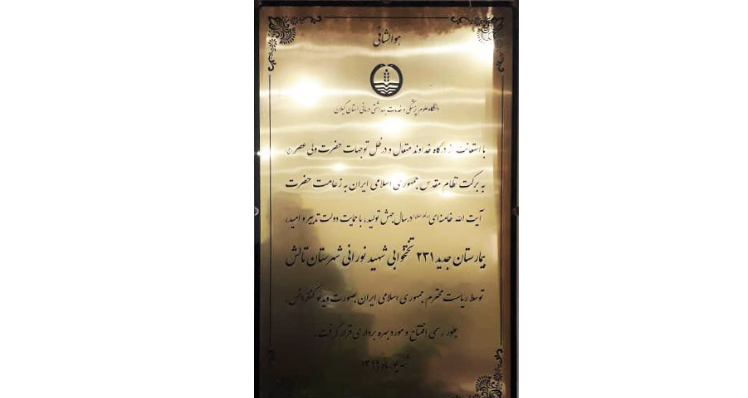 هوالشافی
دانشگاه علوم پزشکی و خدمات بهداشتی درمانی استان گیلان
با استعانت از درگاه خداوند متعال و در ظل توجهات حضرت ولی عصر
به برکت نظام مقدس جمهوری اسلامی ایران به زعامت حضرت
آیت الله خامنه‌ای در سال جهش تولید، با حمایت دولت تدبیر و امید،
بیمارستان جدید ۲۳۱ تختخوابی شهید نورانی شهرستان تالش
توسط ریاست محترم جمهوری اسلامی ایران بصورت ویدئو کنفرانس،
بطور رسمی افتتاح و مورد بهره برداری قرار گرفت.
شهریور ماه ۱۳۹۹